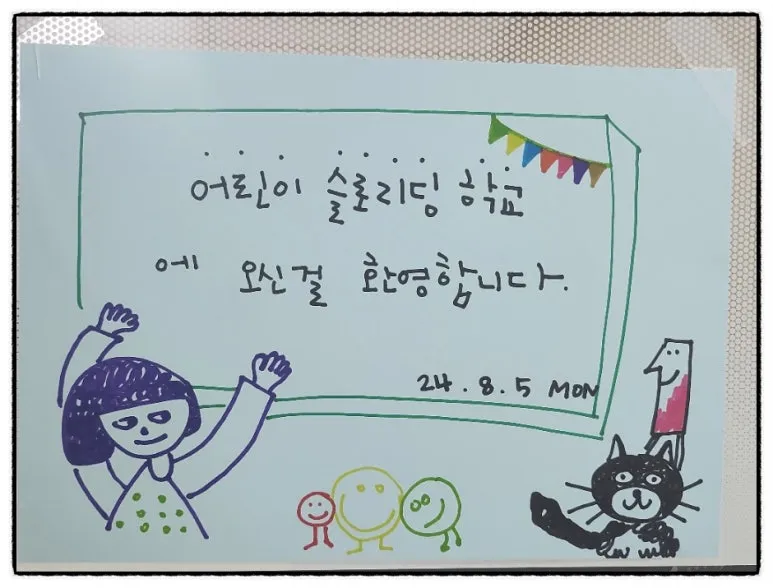 어린이 슬로리딩 학교
에 오신걸 환영합니다.
24.8.5 MON